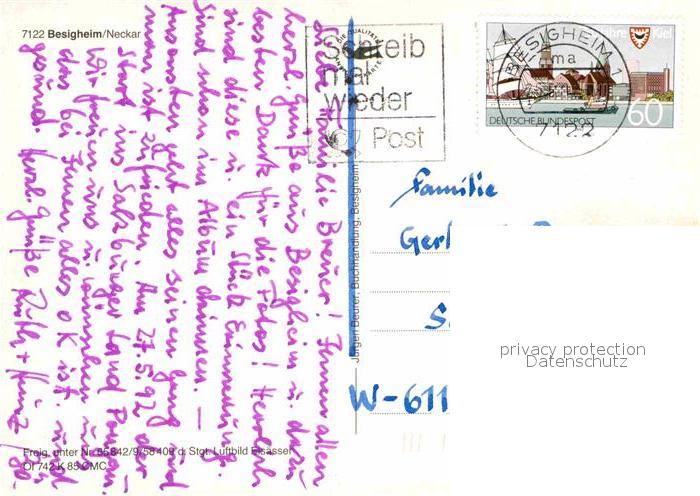 7122 Besigheim/Neckar
Liebe Familie Breuer! Ihnen allen
herzl. Grüße aus Besigheim u. dazu
besten Dank für die Fotos! Herrlich
sind diese u. ein Stück Erinnerung,
sind schon im Album drinnen. —
Ansonsten geht alles seinen Gang und
man ist zufrieden. Am 27.5.92
Start ins Salzburger Land
Wir freuen uns u.
das bei Ihnen alles OK ist und
gesund. Herzl. Grüße Ruth + Heinz
Freig. unter Nr.
d. Stgt. Luftbild Elsässer
Of 742 K 85 CMC
Jürgen Beurer, Buchhandlung, Besigheim
Schreib
mal
wieder
Post
BESIGHEIM 1
ma
7122
Jahre Kiel
DEUTSCHE BUNDESPOST
60
Familie
W-611
privacy protection
Datenschutz